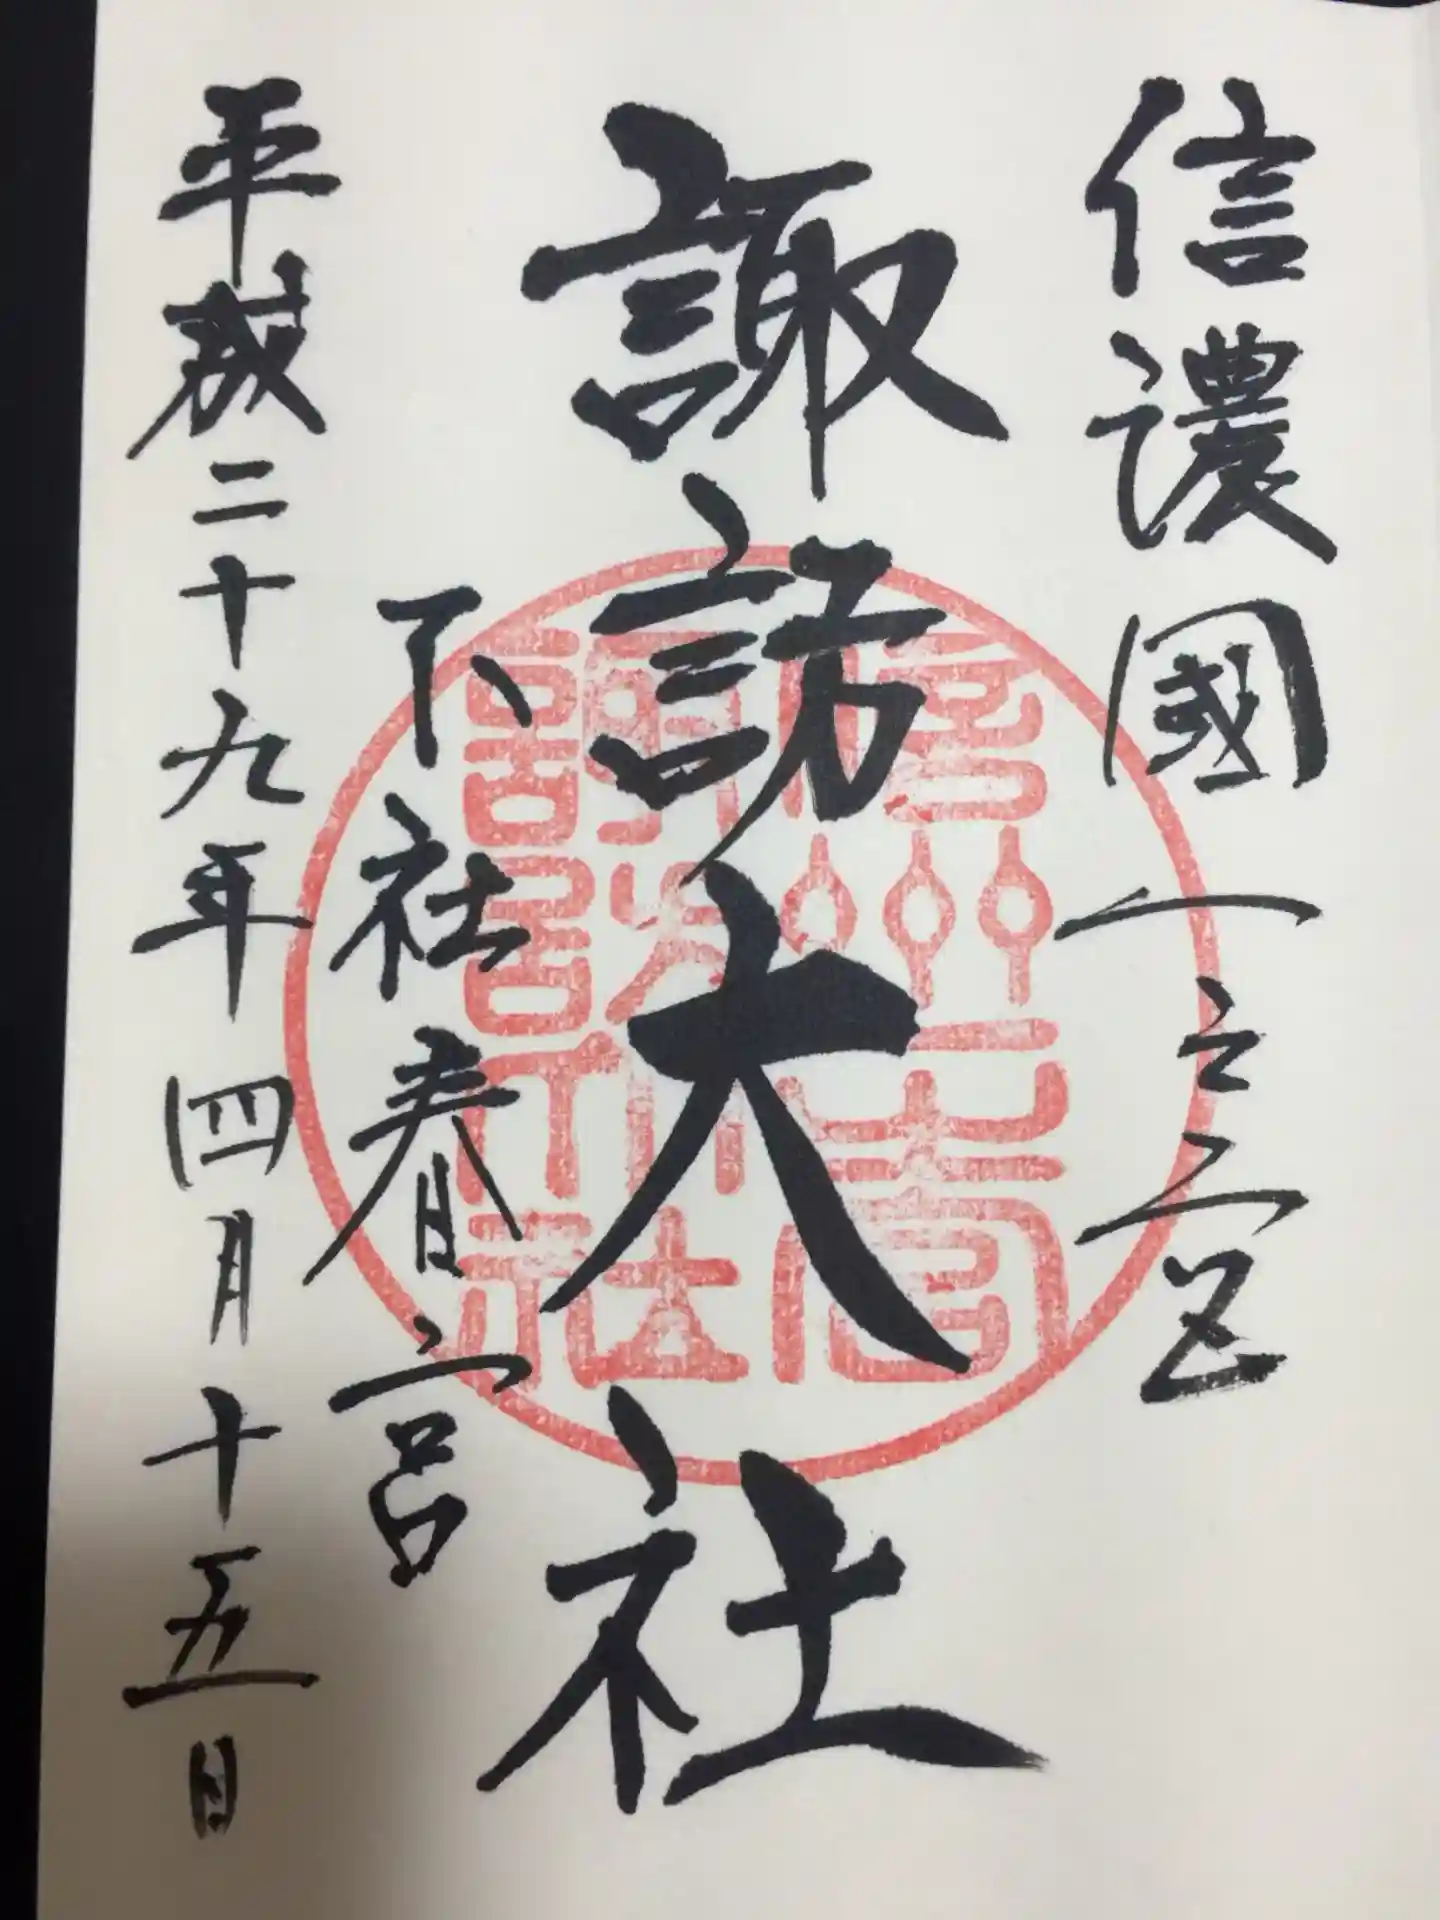 信濃國一之宮
諏訪大社
下社春宮
平成二十九年四月十五日
信州一之宮
諏訪大社